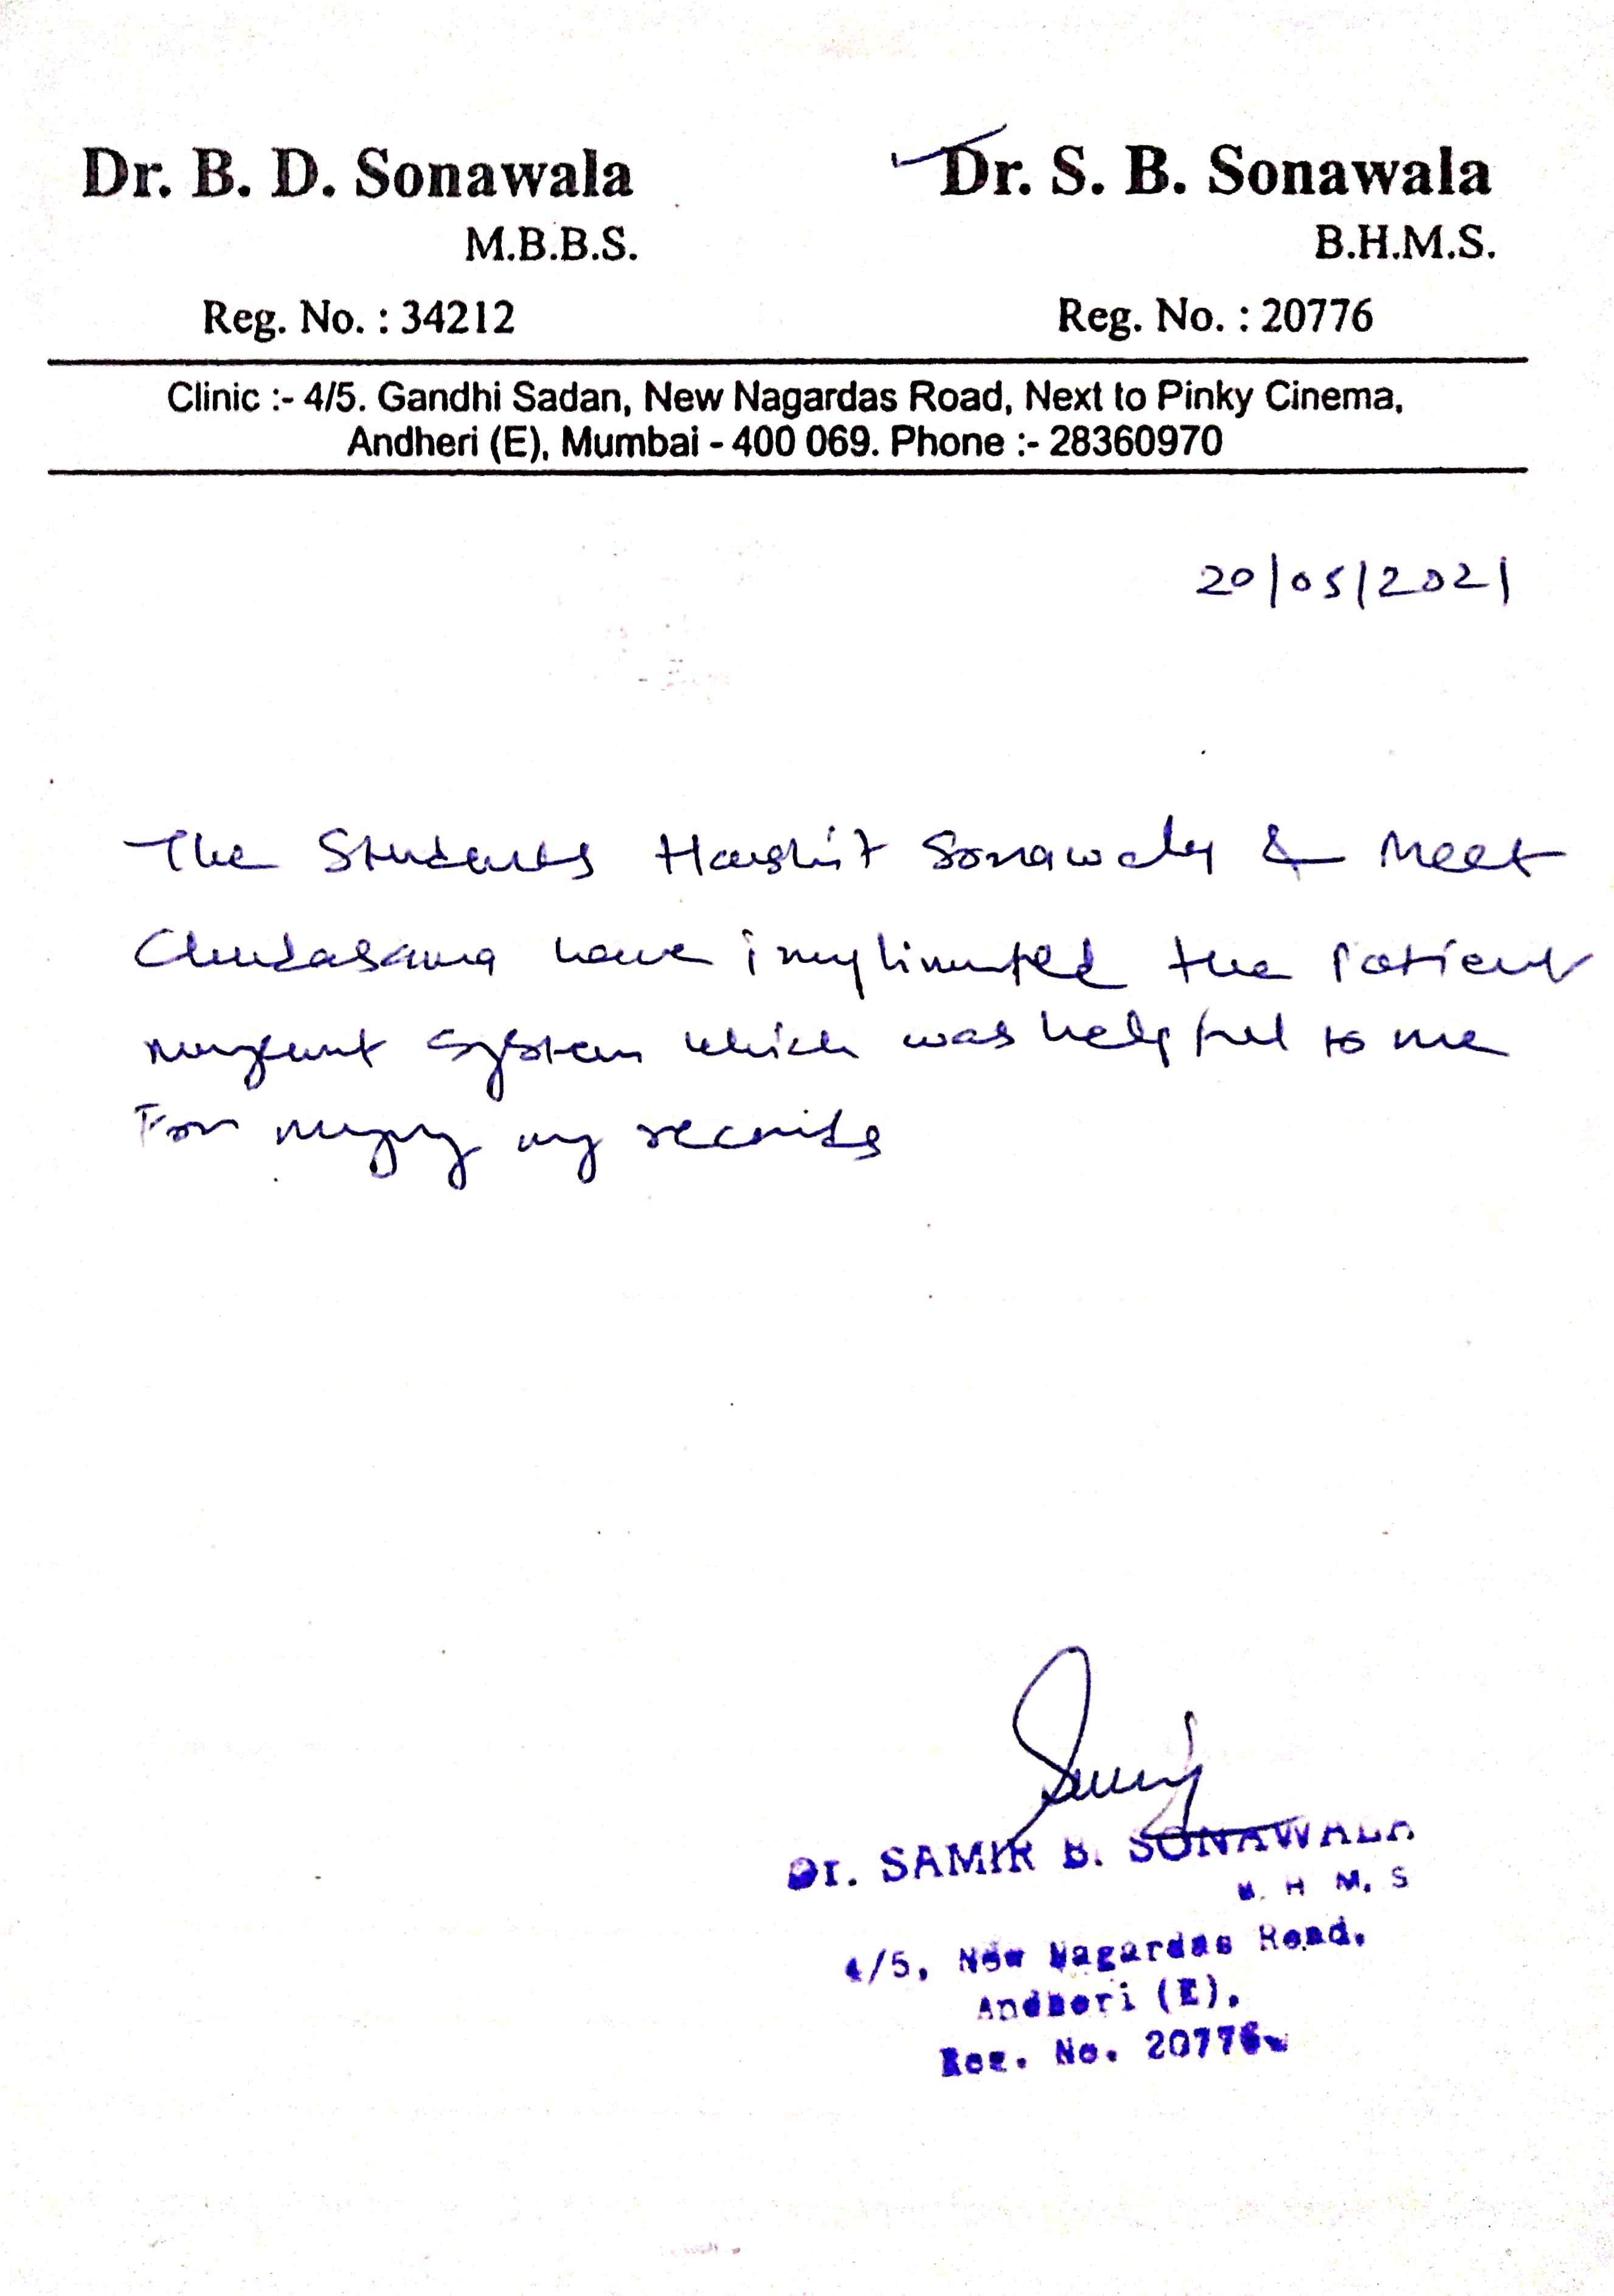 Dr. B. D. Sonawala
M.B.B.S.
Reg. No. : 34212
Dr. S. B. Sonawala
B.H.M.S.
Reg. No. : 20776
Clinic :- 4/5. Gandhi Sadan, New Nagardas Road, Next to Pinky Cinema,
Andheri (E), Mumbai - 400 069. Phone :- 28360970
20/05/2021
The Students Harshit Sonawala & Meet
Chudasama have the Patient
System which was helpful to me
For my records
Dr. SAMIR B. SONAWALA
B. H M. S
4/5, New Nagardas Road.
Andheri (E).
Reg. No. 20776